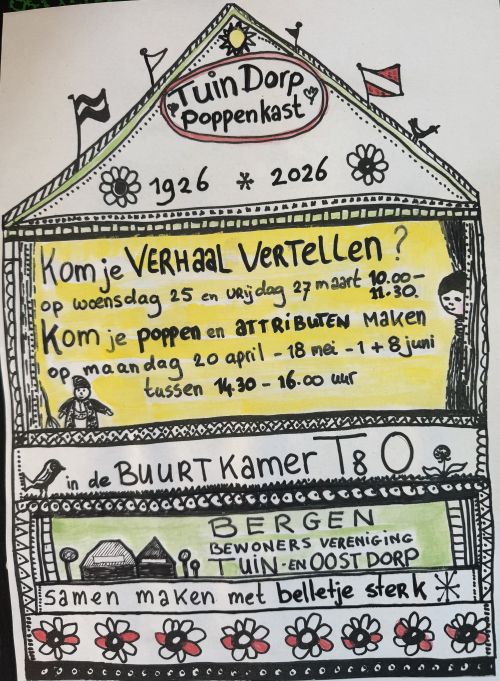 TuinDorp
Poppenkast
1926 * 2026
Kom je VERHAAL VERTELLEN?
op woensdag 25 en vrijdag 27 maart 10.00-
11.30.
Kom je poppen en ATTRIBUTEN maken
op maandag 20 april - 18 mei - 1 + 8 juni
tussen 14.30 - 16.00 uur
in de BUURTKamer T8O
BERGEN
BEWONERS VERENIGING
TUIN-EN OOSTDORP
samen maken met belletje sterk *